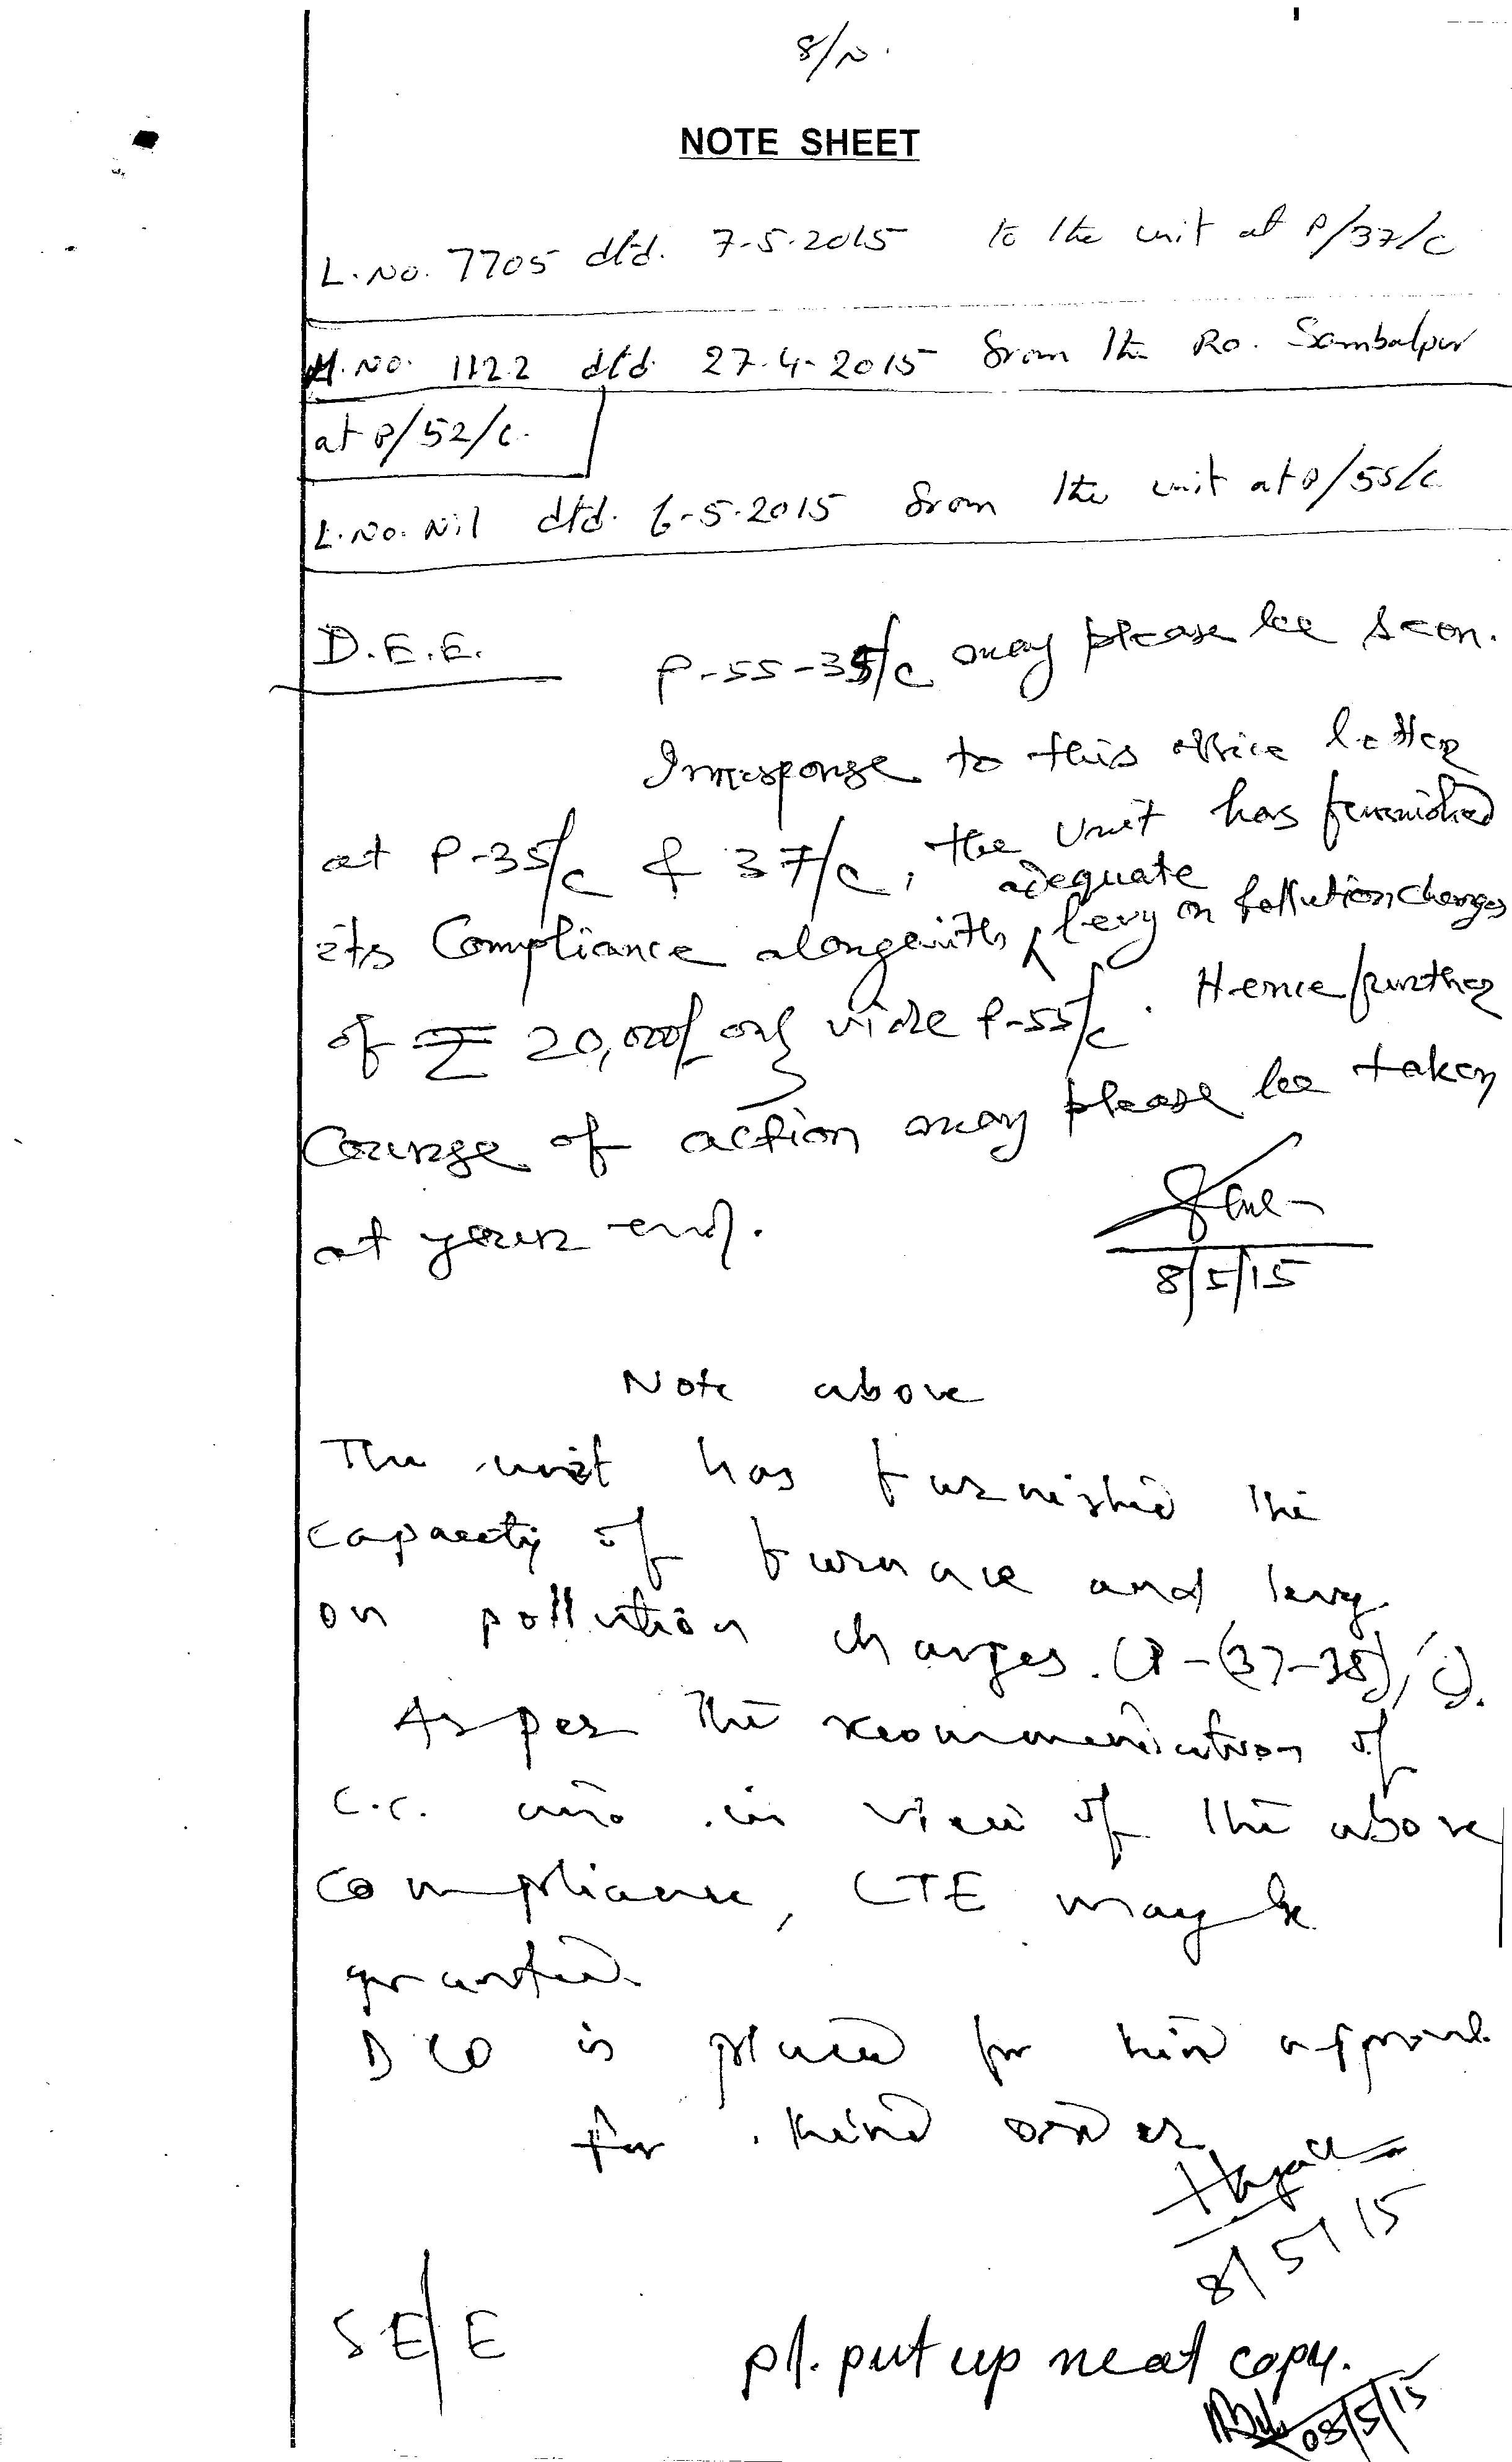 8/N.
NOTE SHEET
L.No. 7705 dtd. 7-5-2015 to the unit at P/37/C
M.No. 1122 dtd. 27-4-2015 from the Ro. Sambalpur
at P/52/C.
L.No. Nil dtd. 6-5-2015 from the unit at P/55/C
D.E.E.
P-55-35/C may please be seen.
In response to this office letter
at P-35/C & 37/C, the Unit has furnished
its Compliance alongwith adequate levy on Pollution charges
of ₹ 20,000/- only vide P-55/C. Hence further
Course of action may please be taken
at your end.
8/5/15
Note above
The unit has furnished the
capacity of furnace and levy
on pollution charges. (P-(37-38)/C).
As per the recommendation of
C.C. and in view of the above
compliance, CTE may be
granted.
DCO is placed for kind approval
for kind order
8/5/15
SE/E
pl. put up neat copy.
08/5/15